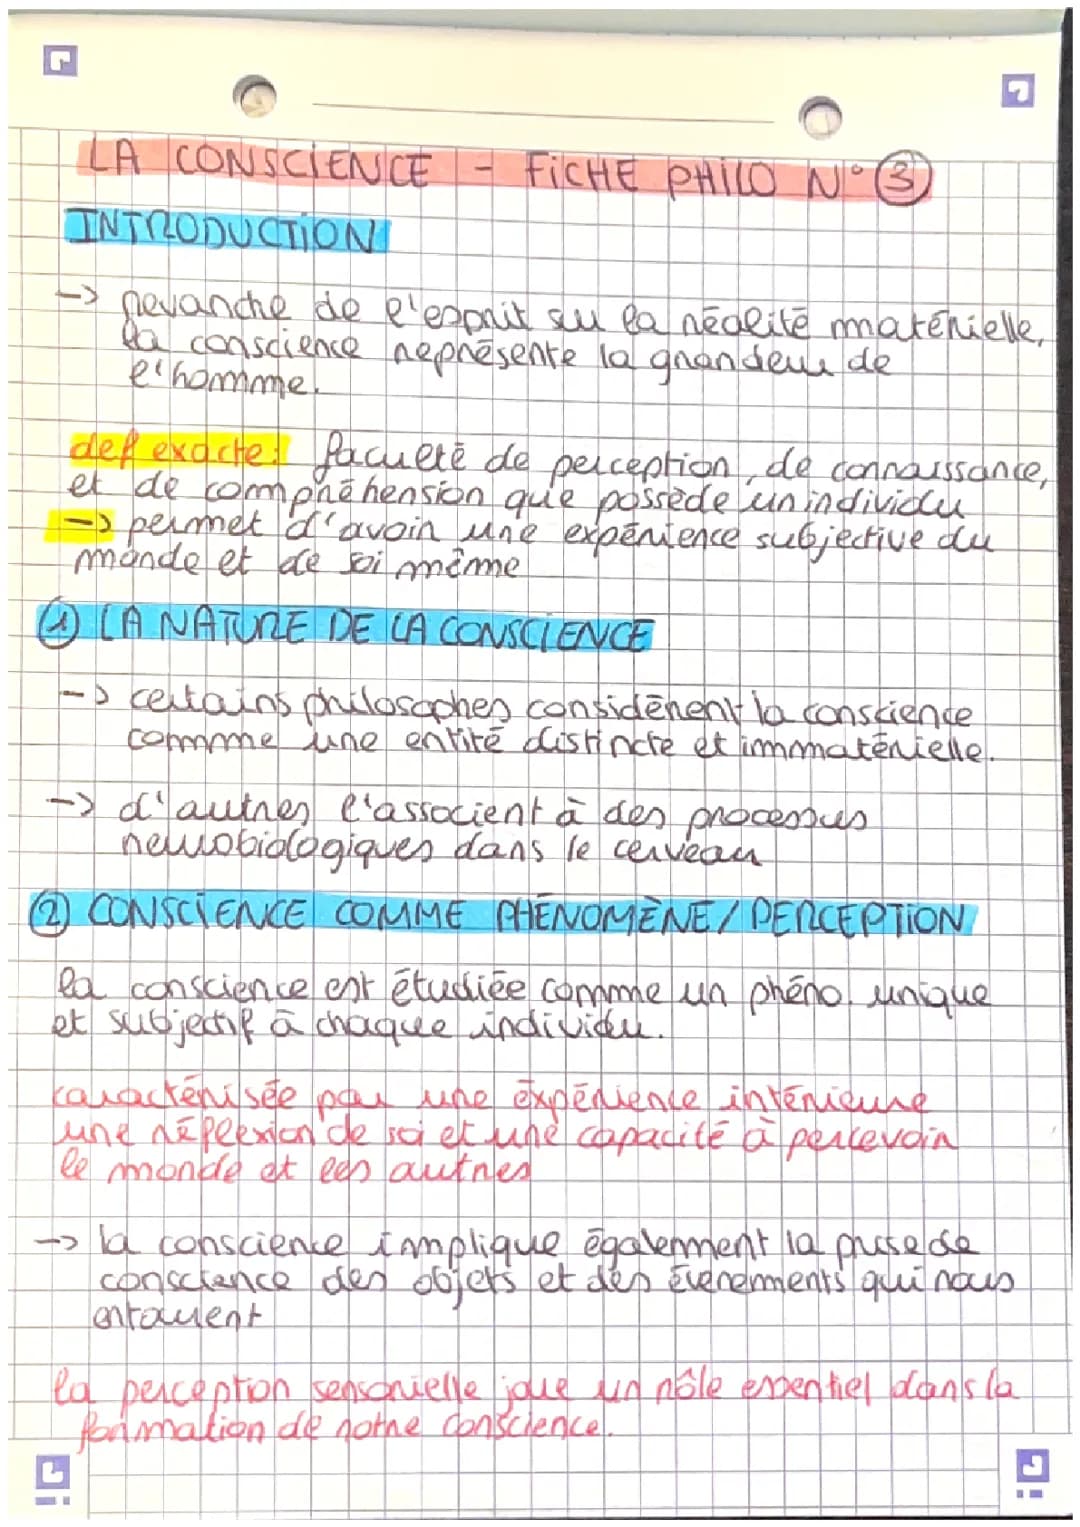 LA CONSCIENCE - FICHE PHILO N° 3
INTRODUCTION
-> revanche de l'esprit su la réalité matérielle,
la conscience représente la grandeur de
l'homme.
def exacte: faculté de perception, de connaissance,
et de compréhension que possède un individu
-> permet d'avoir une expérience subjective du
monde et de soi même
1 LA NATURE DE LA CONSCIENCE
-> certains philosophes considèrent la conscience
comme une entité distincte et immatérielle.
-> d'autres l'associent à des processus
neurobiologiques dans le cerveau
2 CONSCIENCE COMME PHÉNOMÈNE / PERCEPTION
la conscience est étudiée comme un phéno. unique
et subjectif à chaque individu.
caractérisée par une expérience intérieure
une réflexion de soi et une capacité à percevoir
le monde et les autres
-> la conscience implique également la prise de
conscience des objets et des évenements qui nous
entourent
la perception sensorielle joue un rôle essentiel dans la
formation de notre conscience.